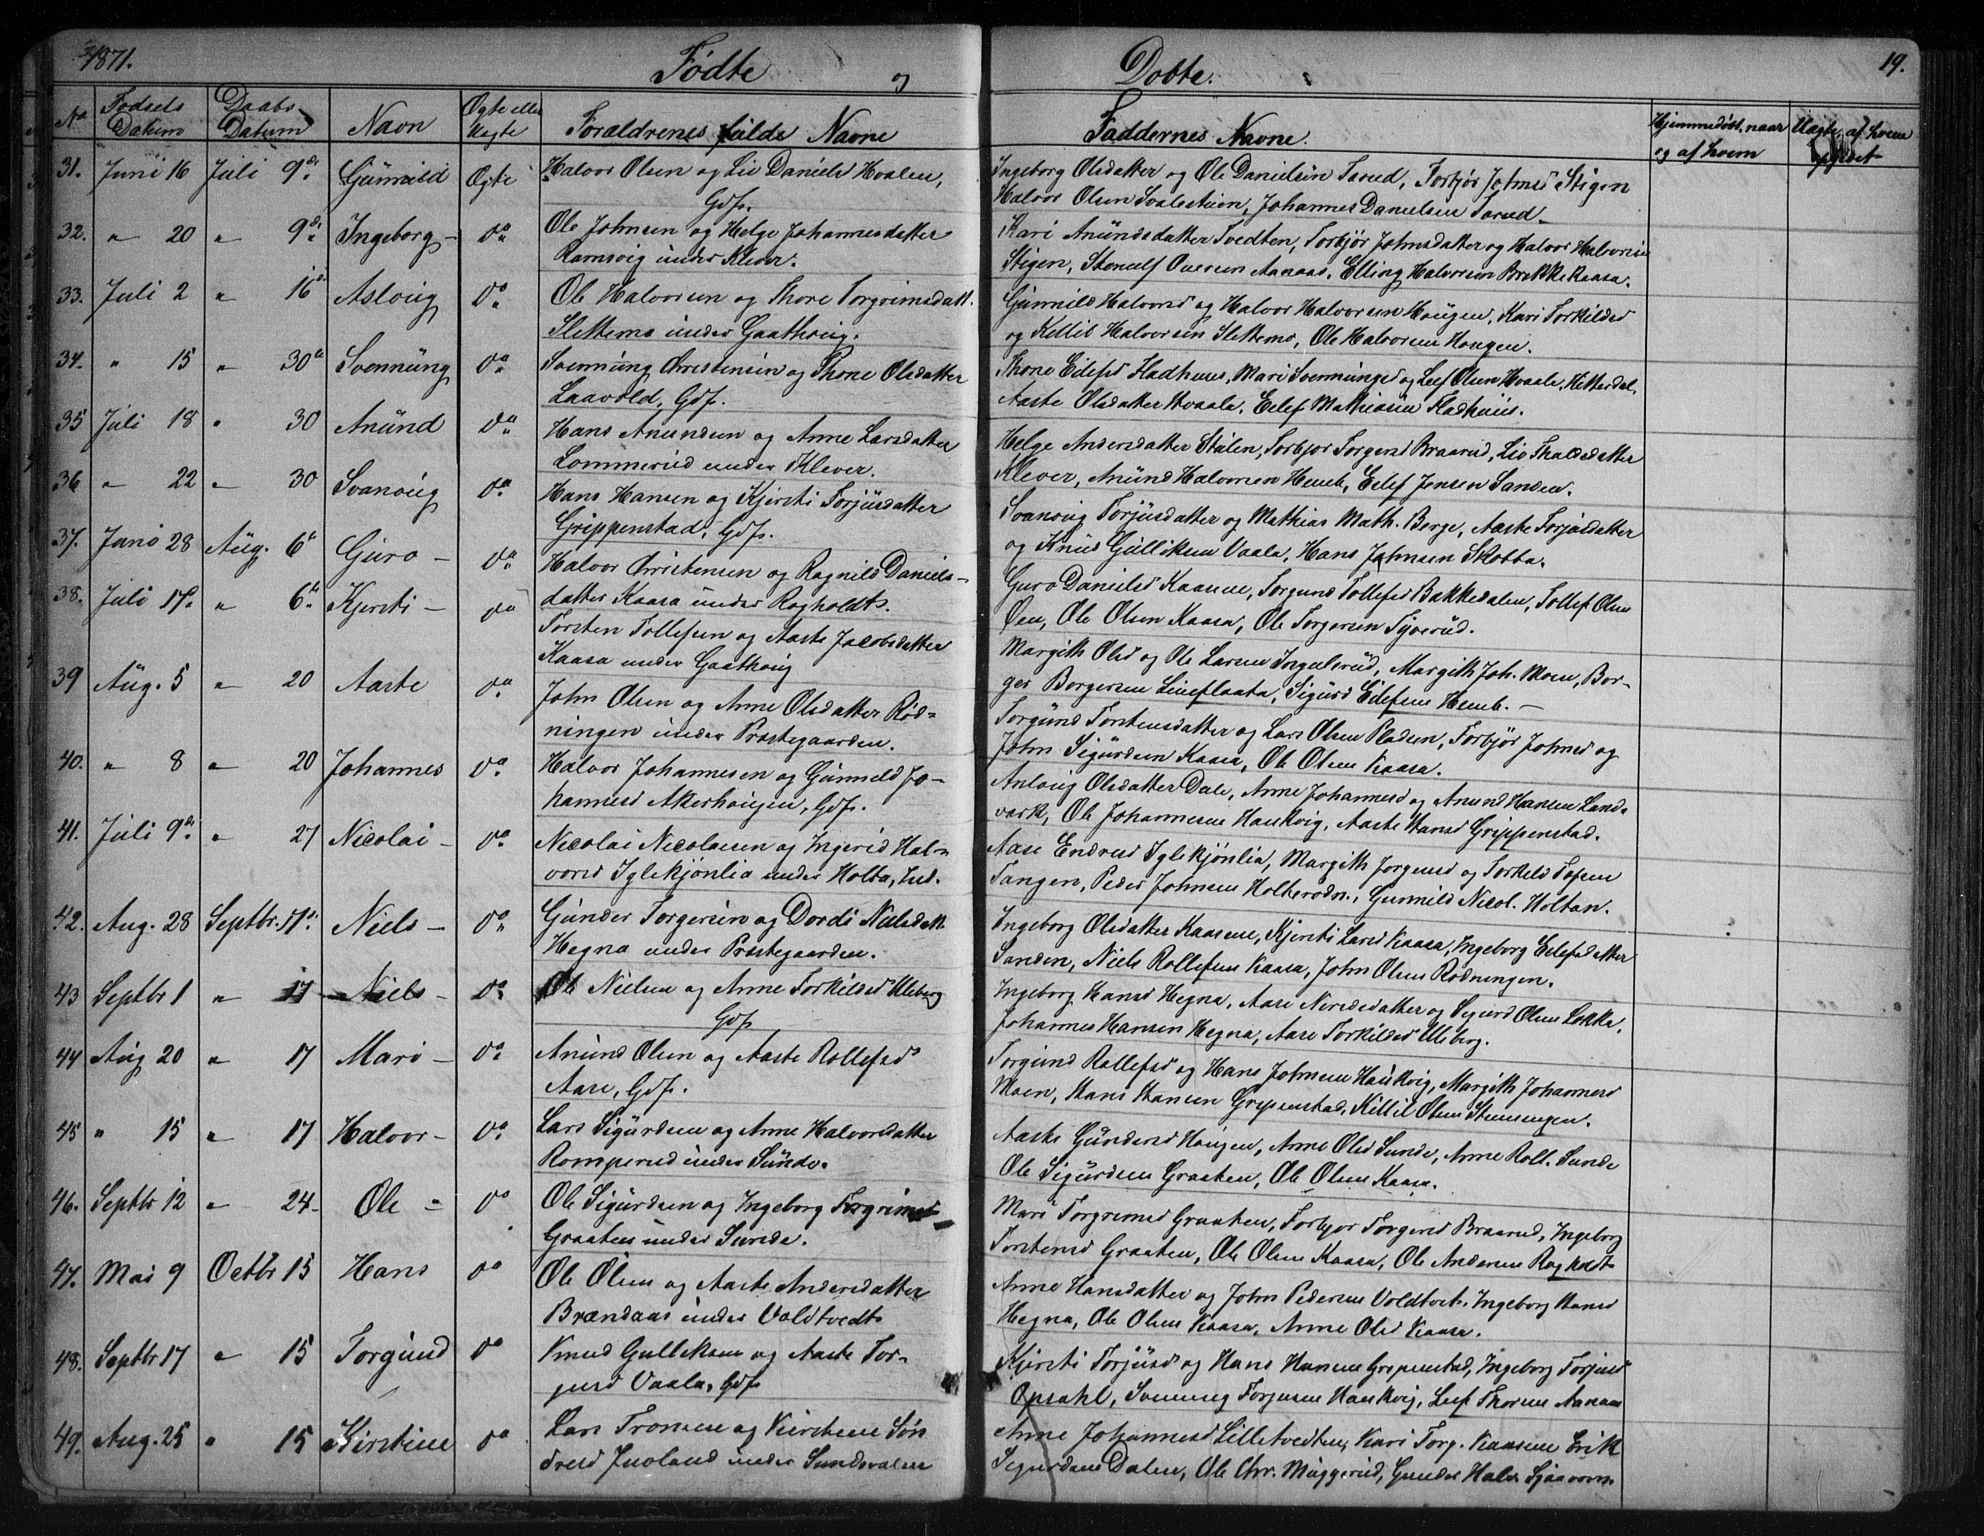 1871.
Fødte
og
Døbte.
19.
No
Fødsels Datum
Daabs Datum
Navn
Ægte eller Uægte
Forældrenes fulde Navne
Faddernes Navne.
Hjemmedøbt, naar og af hvem
Uægte, af hvem
31. Juni 16 Juli 9de Gunnild Ægte Halvor Olsen og Liv Daniels Hvalen,
Gdf.
Ingeborg Olsdatter og Ole Danielsen Tarud, Torbjør Johnsd Stigen
Halvor Olsen Svalestuen, Johannes Danielsen Tarud.
32. " 20 " 9de Ingeborg Do Ole Johnsen og Helge Johannesdatter
Ramsvig under Klever.
Kari Anundsdatter Tvedten, Torbjør Johnsdatter og Halvor Halvorsen
Stigen, Stenulf Oversen Aanaas, Elling Halvorsen Brekke Kaasa.
33. Juli 2 " 16de Aslaug Do Ole Halvorsen og Thore Torgrimsdatt.
Slettemo under Gaathoug.
Gunnild Halvorsd og Halvor Halvorsen Hougen, Kari Torkildsd
og Kittil Halvorsen Slettemo, Ole Halvorsen Hougen.
34. " 15 " 30te Svennung Do Svennung Christensen og Thone Olsdatter
Laavold, Gdf.
Thone Eilefsd Fladhuus, Mari Svennungsd og Leif Olsen Hvaala, Hitterdal,
Aaste Olsdatter Hvaala, Eilef Mathiasen Fladhuus.
35 Juli 18 " 30 Anund Do Hans Anundsen og Anne Larsdatter
Lommerud under Klever.
Helge Andersdatter Stulen, Torbjør Torgersd Braarud, Liv Skaldsdatter
Klever, Anund Halvorsen Hemb, Eilef Jensen Sanden.
36 " 22 " 30 Svanaug Do Hans Hansen og Kjersti Torjusdatter
Grippenstad, Gdf.
Svanaug Torjusdatter og Mathias Math. Berge, Aaste Torjusdatter
og Knud Gulliksen Vaala, Hans Johnsen Skotta.
37. Juni 28 Aug. 6te Guro Do Halvor Christensen og Ragnild Daniels-
datter Kaasa under Ragholdt.
Guro Danielsd Kaasene, Torgund Tollefsd Bakkedalen, Tollef Olsen
Øen, Ole Olsen Kaasa, Ole Torgersen Tyverud.
38. Juli 17. " 6te Kjersti Do Torsten Tollefsen og Aaste Jacobsdatter
Kaasa under Gaathoug
Margith Olsd og Ole Larsen Ingulsrud, Margith Joh. Moen, Bor-
ger Borgersen Lineflaata, Sigurd Eilefsen Hemb.
39 Aug. 5 " 20 Aaste Do John Olsen og Anne Olsdatter Rød-
ningen under Præstegaarden.
Torgund Torstensdatter og Lars Olsen Pladsen, Torbjør Johnsd og
John Sigurdsen Kaasa, Ole Olsen Kaasa.
40. " 8 " 20 Johannes Do Halvor Johannesen og Gunnild Jo-
hannesd Akerhougen, Gdf.
Anlaug Olsdatter Dale, Anne Johannesd og Anund Hansen Land-
vark, Ole Johannesen Haukvig, Aaste Hansd Grippenstad.
41. Juli 9de " 27 Nicolai Do Nicolai Nicolaisen og Ingerid Hal-
vorsd Iglekjønlia under Holta, Lud.
Aase Endresd Iglekjønlia, Margith Jørgensd og Torkild Tofsen
Tangen, Peder Johnsen Holterødn., Gunnild Nicol. Holtan.
42. Aug. 28 Septbr. 17de Niels Do Gunder Torgersen og Dordi Nielsdatt.
Hegna under Præstegaarden.
Ingeborg Olsdatter Kaasene, Kjersti Larsd Kaasa, Ingeborg Eilefsdatter
Sanden, Niels Rollefsen Kaasa, John Olsen Rødningen.
43 Septbr 1 " 17 Niels Do Ole Nielsen og Anne Torkildsd Uleberg
Gdf
Ingeborg Hansd Hegna, Aase Nirisdatter og Sigurd Olsen Løkka,
Johannes Hansen Hegna, Aase Torkildsd Uleberg.
44 Aug 20 " 17 Mari Do Anund Olsen og Aaste Rollefsd
Aase, Gdf.
Torgund Rollefsd og Hans Johnsen Haukvig, Margith Johannesd
Moen, Hans Hansen Grippenstad, Kittil Olsen Stenmengen.
45 " 15 " 17 Halvor Do Lars Sigurdsen og Anne Halvorsdatter
Romperud under Sunde.
Aaste Gundersd Haugen, Anne Olsd Sunde, Anne Roll. Sunde
Ole Sigurdsen Graaten, Ole Olsen Kaasa.
46. Septbr 12 " 24 Ole Do Ole Sigurdsen og Ingeborg Torgrimsd
Graaten under Sunde.
Mari Torgrimsd Graaten, Torbjør Torgersd Braarud, Ingeborg
Torstensd Graaten, Ole Olsen Kaasa, Ole Andersen Ragholdt
47. Mai 9 Octbr 15 Hans Do Ole Olsen og Aaste Andersdatter
Brændaas under Voldtvedt.
Anne Hansdatter og John Pedersen Voldtvet, Ingeborg Hansd
Hegna, Ole Olsen Kaasa, Anne Olsd Kaasa.
48. Septbr 17 " 15 Torgund Do Knud Gulliksen og Aaste Tor-
jusd Vaala, Gdf
Kjersti Torjusd og Hans Hansen Grippenstad, Ingeborg Torjusd
Opsahl, Svennung Torjusen Haukvig, Leif Thorsen Aanaas
49. Aug. 25 " 15 Kirstine Do Lars Tronsen og Kirstene Søn
dresd Juvland under Sundsvalen
Anne Johannesd Lilletvedten, Kari Torg. Kaasene, Erik
Sigurdsen Dalen, Ole Chr. Muggerud, Gunder Halv. Sjaavorn.